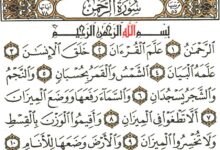 سُورَةُ الرَّحْمٰن
بِسْمِ اللَّهِ الرَّحْمَٰنِ الرَّحِيمِ
الرَّحْمَٰنُ ١ عَلَّمَ الْقُرْءَانَ ٢ خَلَقَ الْإِنسَٰنَ ٣
عَلَّمَهُ الْبَيَانَ ٤ الشَّمْسُ وَالْقَمَرُ بِحُسْبَانٍ ٥ وَالنَّجْمُ
وَالشَّجَرُ يَسْجُدَانِ ٦ وَالسَّمَاءَ رَفَعَهَا وَوَضَعَ الْمِيزَانَ ٧
أَلَّا تَطْغَوْا فِي الْمِيزَانِ ٨ وَأَقِيمُوا الْوَزْنَ بِالْقِسْطِ
وَلَا تُخْسِرُوا الْمِيزَانَ ٩ وَالْأَرْضَ وَضَعَهَا لِلْأَنَامِ ١٠